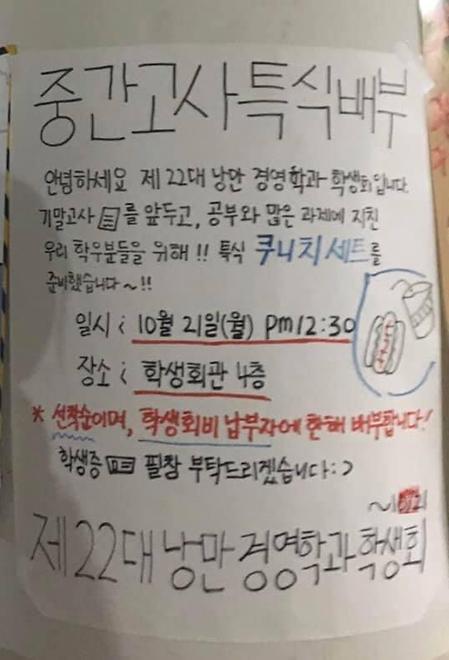 중간고사특식배부
안녕하세요 제 22대 낭만 경영학과 학생회입니다.
기말고사 를 앞두고, 공부와 많은 과제에 지친
우리 학우분들을 위해 !! 특식 쿠니치세트를
준비했습니다~!!
일시 : 10월 21일(월) pm12:30
장소 : 학생회관 4층
* 선착순이며, 학생회비 납부자에 한해 배부합니다!
학생증 필참 부탁드리겠습니다:)
제22대 낭만 경영학과 학생회